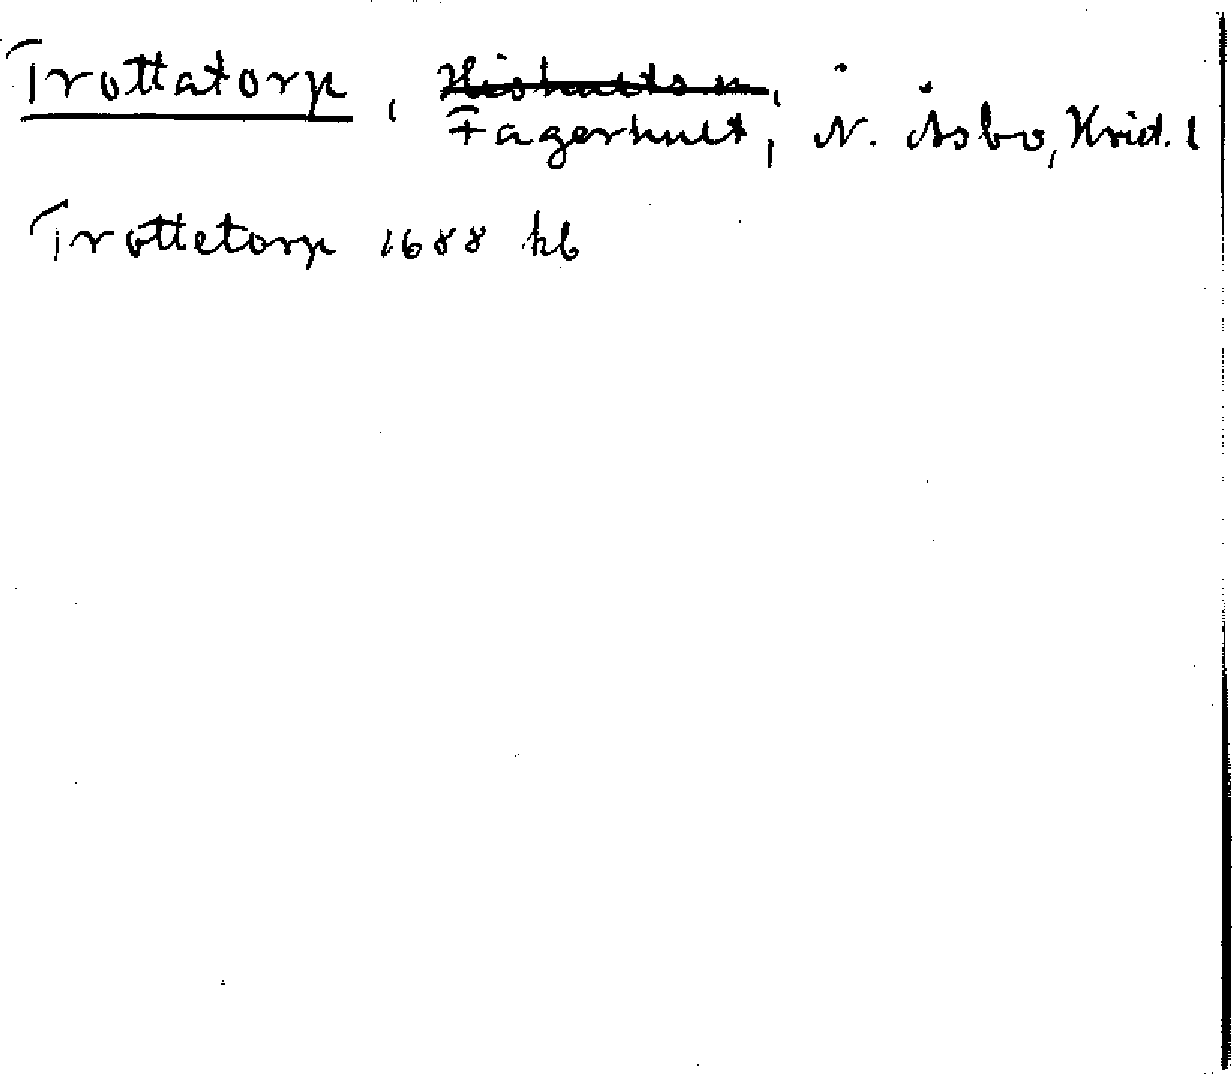 Trottatorp, Hishults sn,
Fagerhult, N. Åsbo, Krist. l
Trottetorp 1688 kb